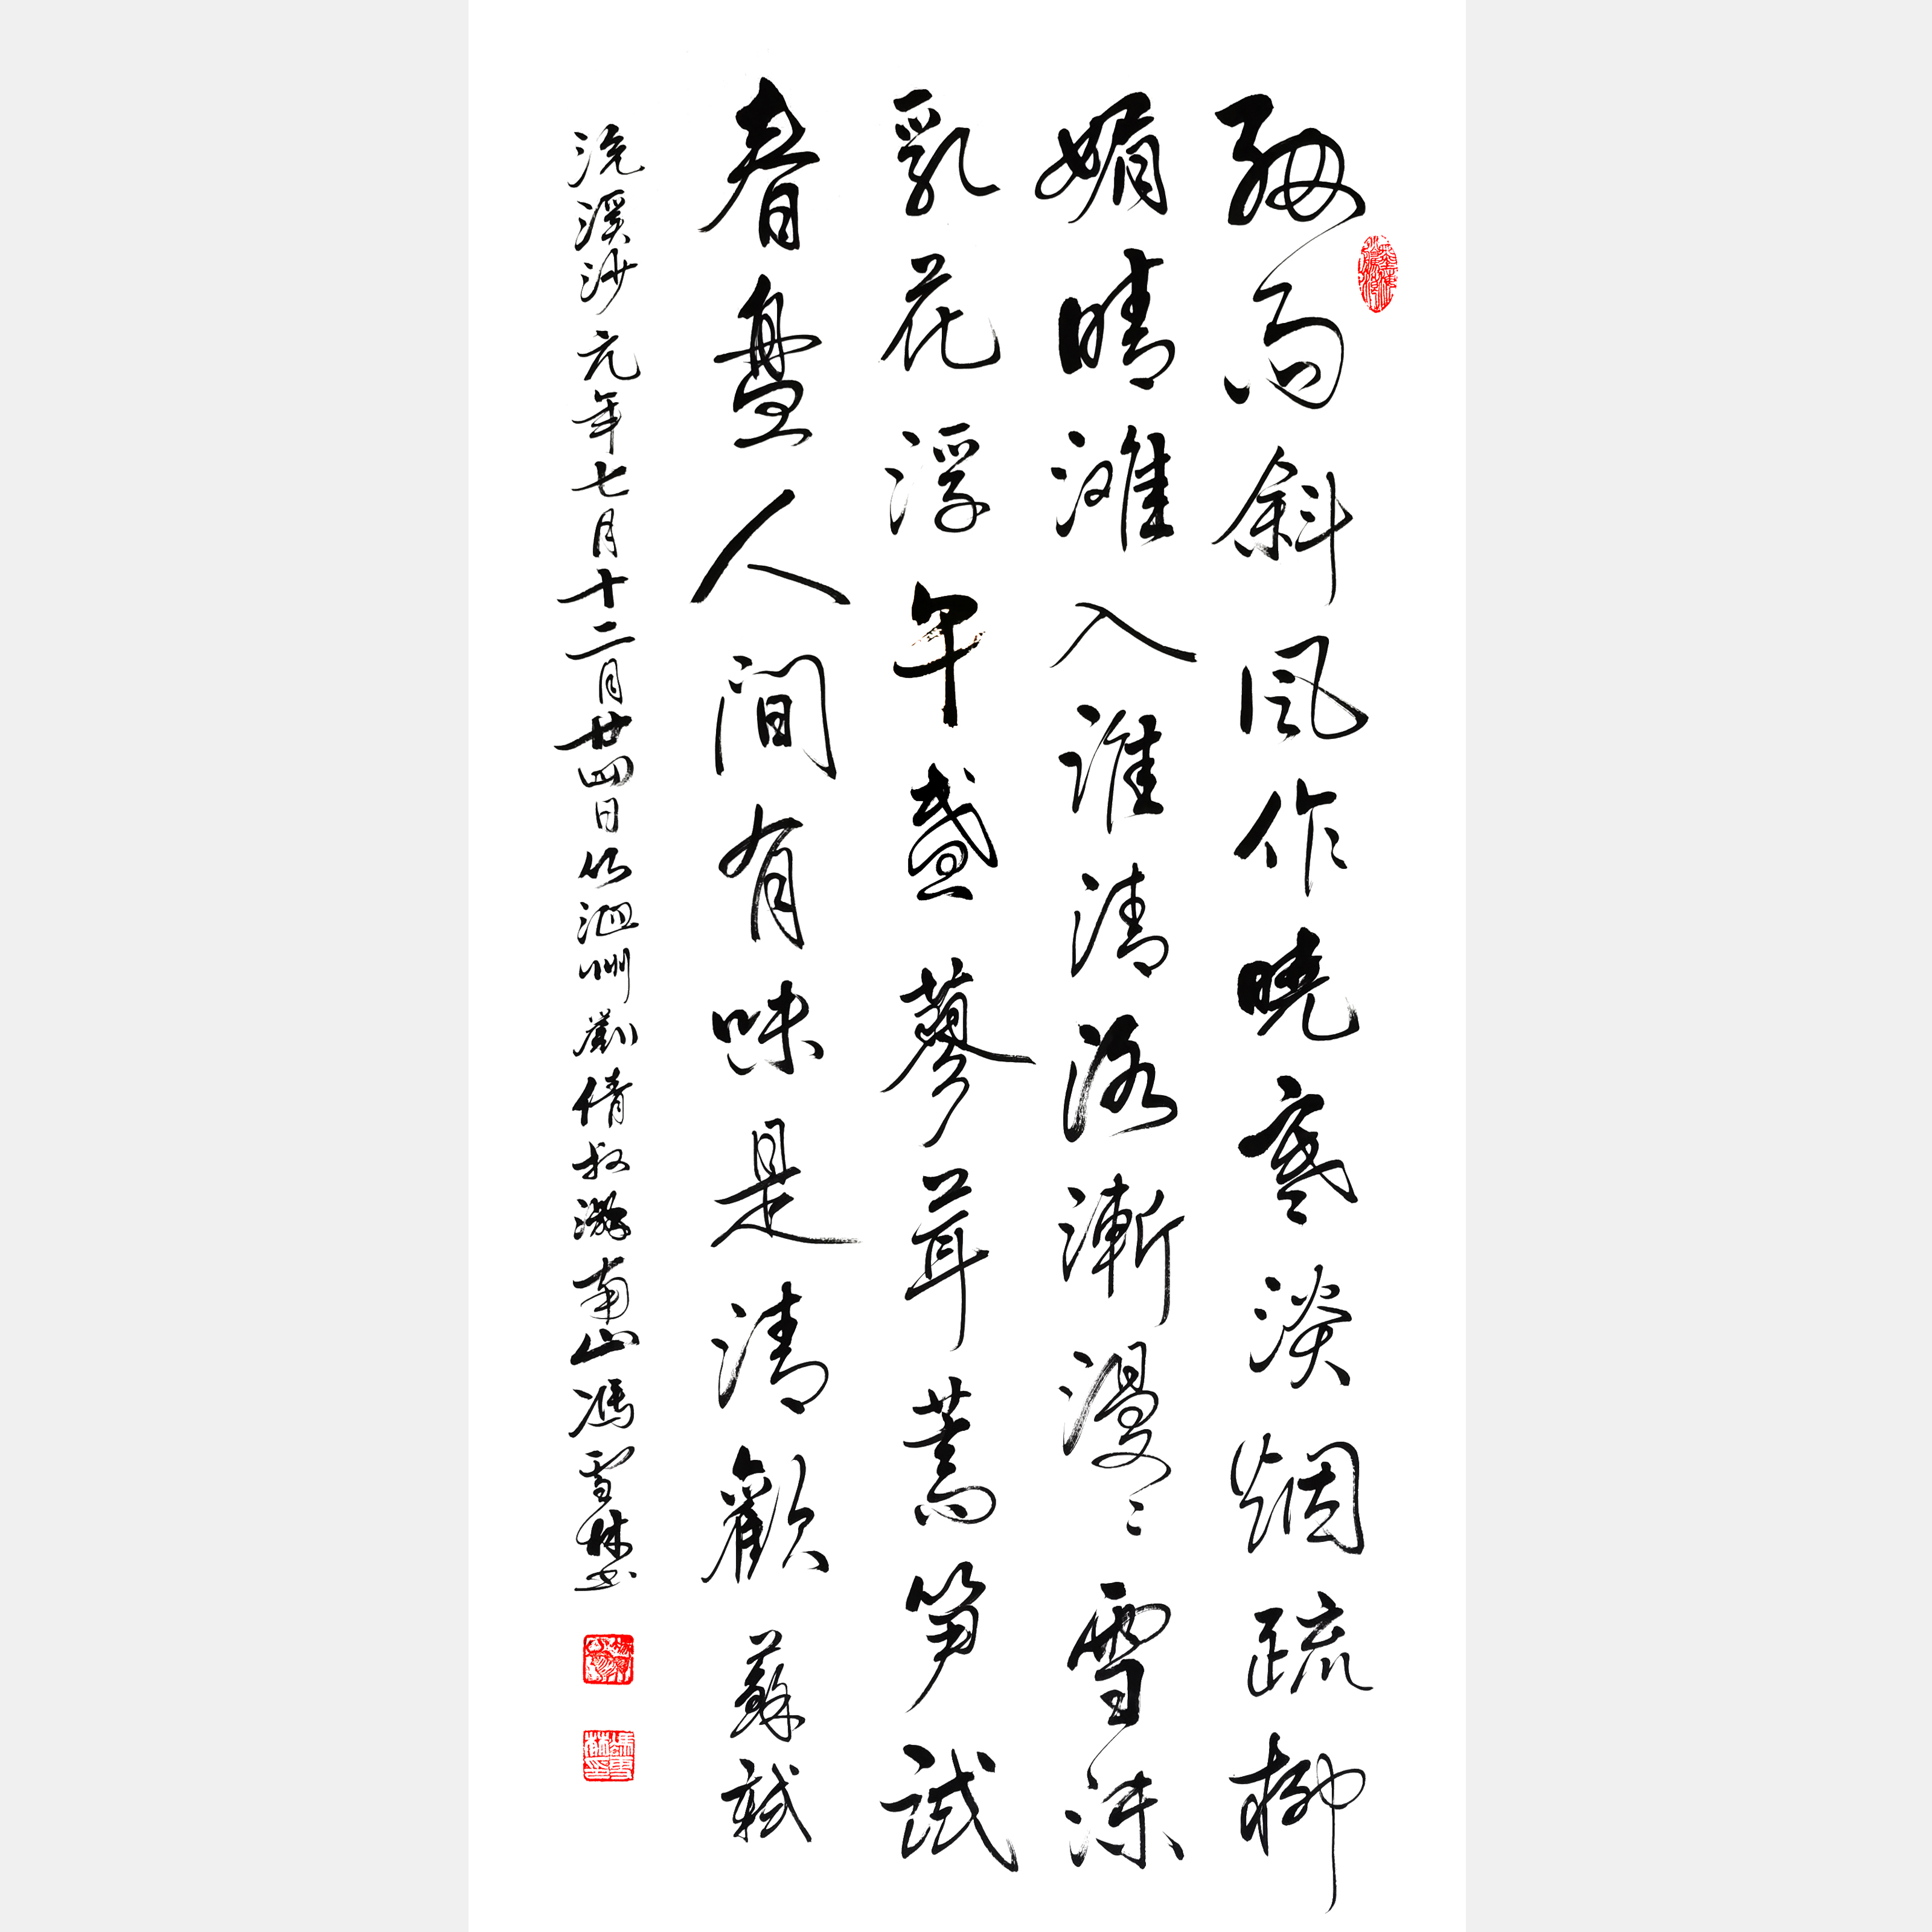 細雨斜風作曉寒淡烟疏柳
媚晴滩入淮清洛漸漫〻雪沫
乳花浮午盞蓼茸蒿笋試
春盤人間有味是清歡 蘇軾
浣溪沙元年七月十二月廿四日从泗州劉倩叔游南山馮雪林书